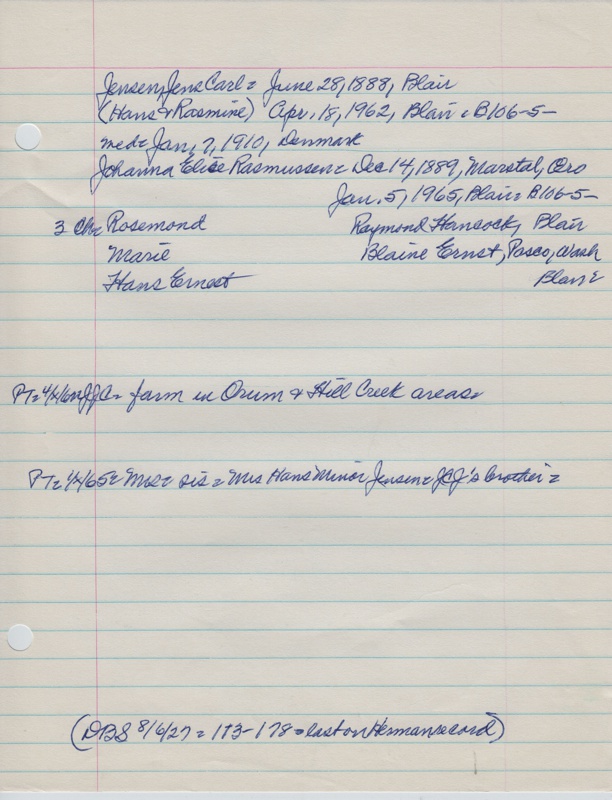 Jensen, Jens Carl = June 28, 1888, Blair
(Hans & Rasmine) Apr. 18, 1962, Blair = B106-5-
med = Jan. 7, 1910, Denmark
Johanna Elise Rasmussen = Dec 14, 1889, Marstal, Oro
Jan. 5, 1965, Blair = B106-5-
3 Ch = Rosemond Raymond Hancock, Blair
Marie Blaine Ernst, Pasco, Wash
Hans Ernest Blair =
PT = JJC = farm in Orum & Hill Creek areas =
PT = Mrs = sis = Mrs Hans Minor Jensen = JCJ's brother =
(DBS 8/6/27 = 173-178 = last on Herman record)